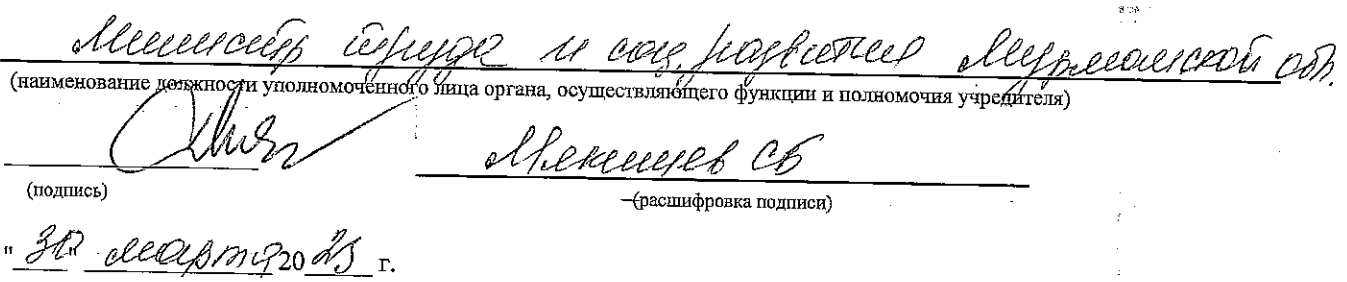 Министр труда и соц. развития Мурманской обл.
(наименование должности уполномоченного лица органа, осуществляющего функции и полномочия учредителя)
Мякишев СБ
(подпись) (расшифровка подписи)
" " марта 20 г.